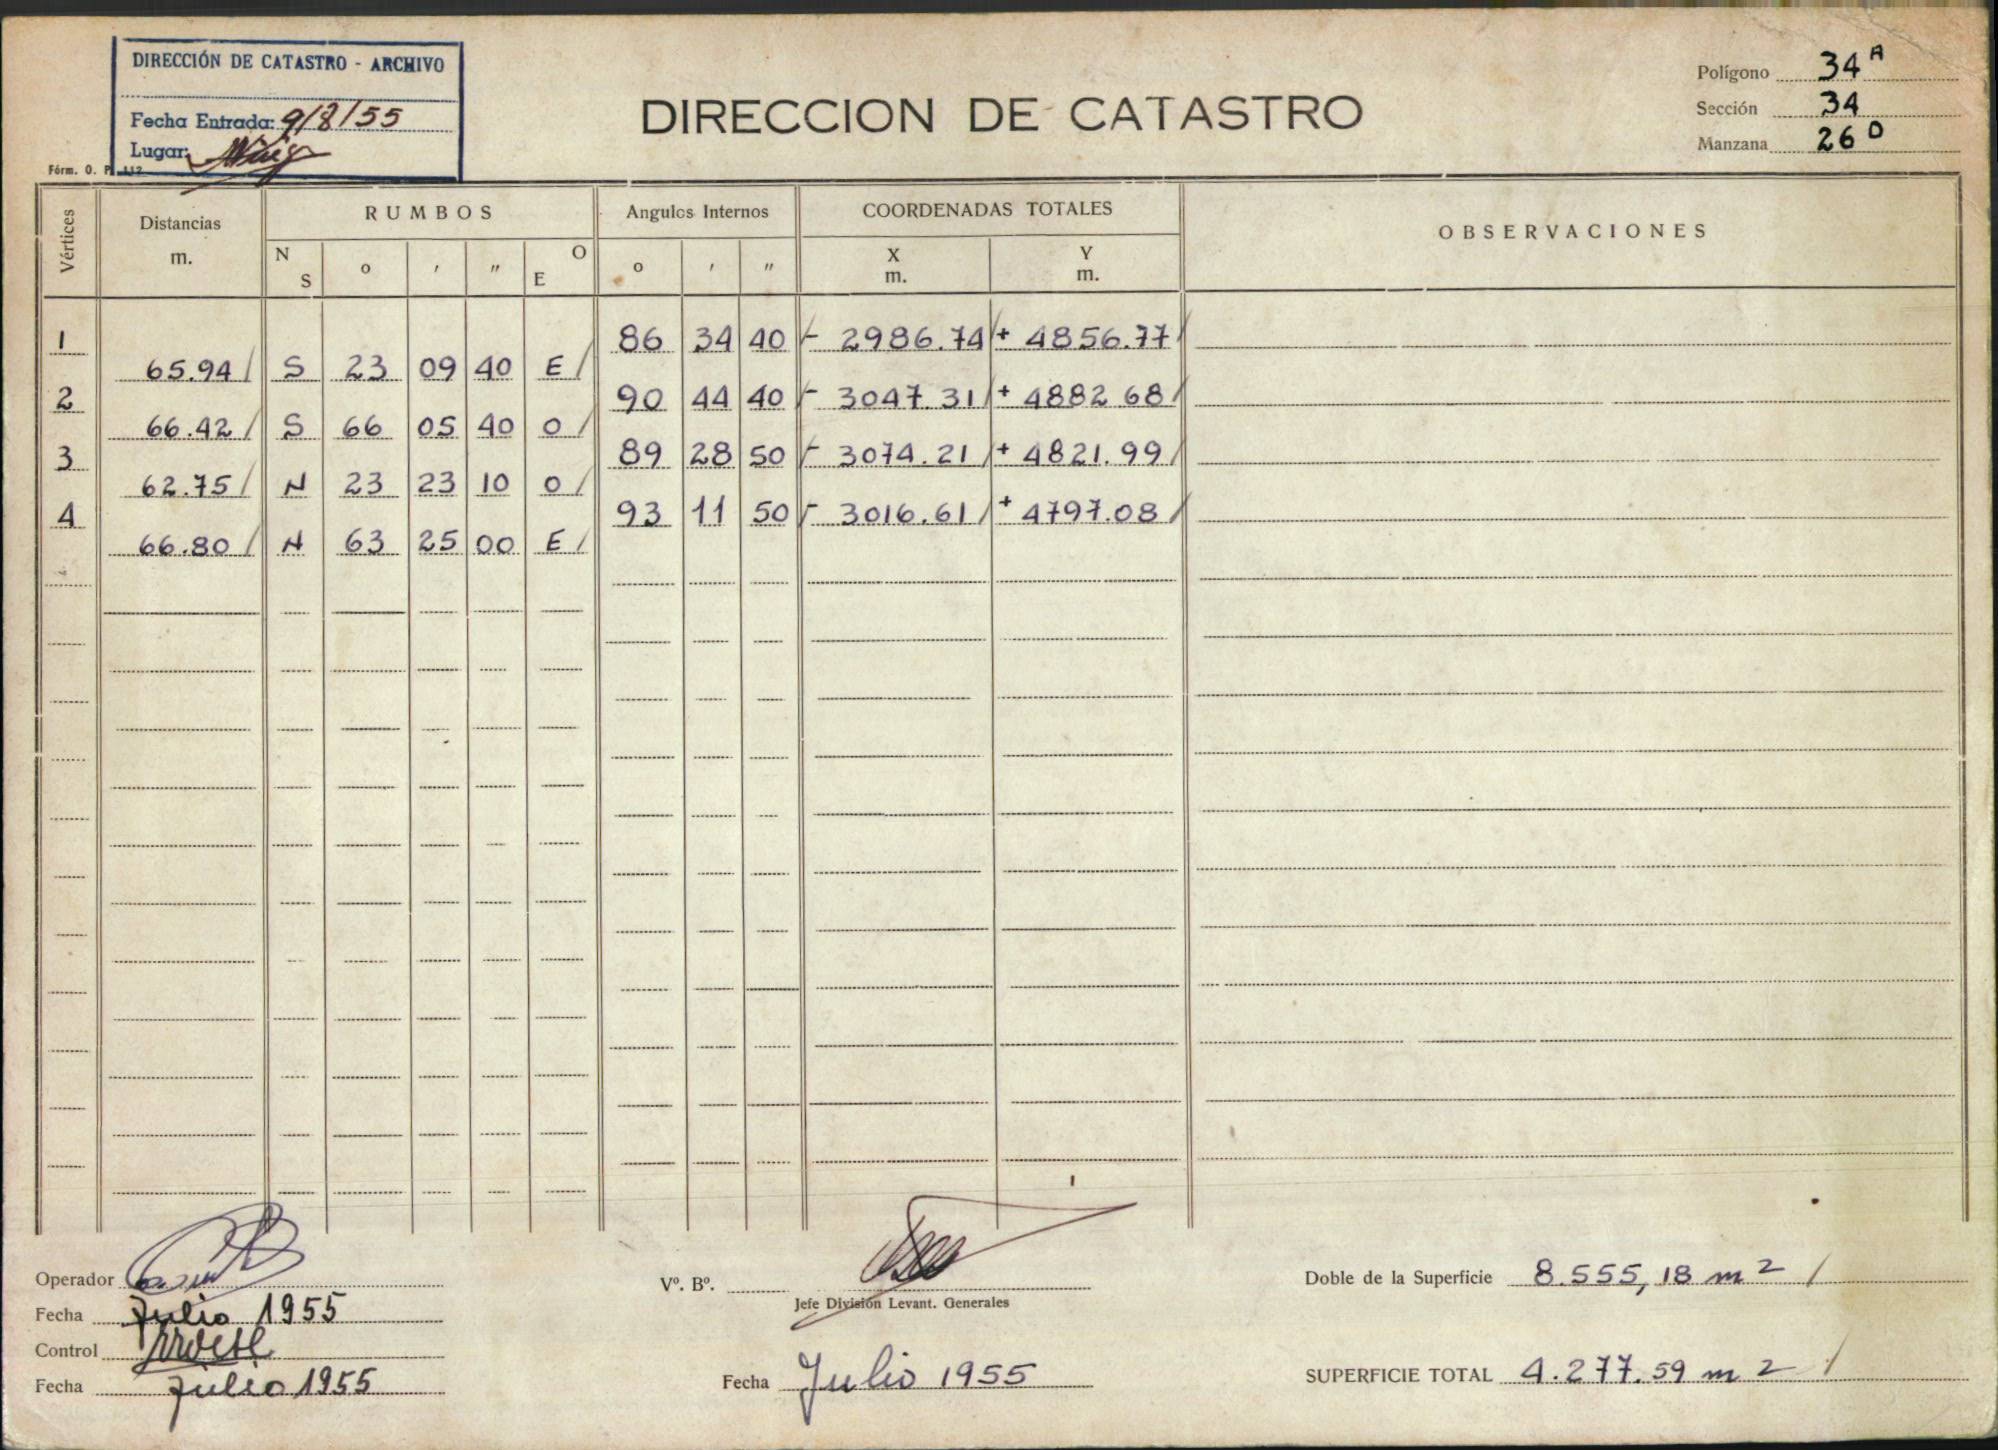 DIRECCIÓN DE CATASTRO - ARCHIVO
Fecha Entrada: 9/8/55
Lugar:
Fórm. O. P. 112
DIRECCION DE CATASTRO
Polígono 34 A
Sección 34
Manzana 26 D
Vértices
Distancias m.
RUMBOS
N S ° ' " O E
Angulos Internos
° ' "
COORDENADAS TOTALES
X m. Y m.
OBSERVACIONES
1 86 34 40 - 2986.74 + 4856.77
65.94 S 23 09 40 E
2 90 44 40 - 3047.31 + 4882 68
66.42 S 66 05 40 O
3 89 28 50 - 3074.21 + 4821.99
62.75 N 23 23 10 O
4 93 11 50 - 3016.61 + 4797.08
66.80 N 63 25 00 E
Operador
Fecha Julio 1955
Control
Fecha Julio 1955
Vº. Bº.
Jefe División Levant. Generales
Fecha Julio 1955
Doble de la Superficie 8.555,18 m2
SUPERFICIE TOTAL 4.277.59 m2